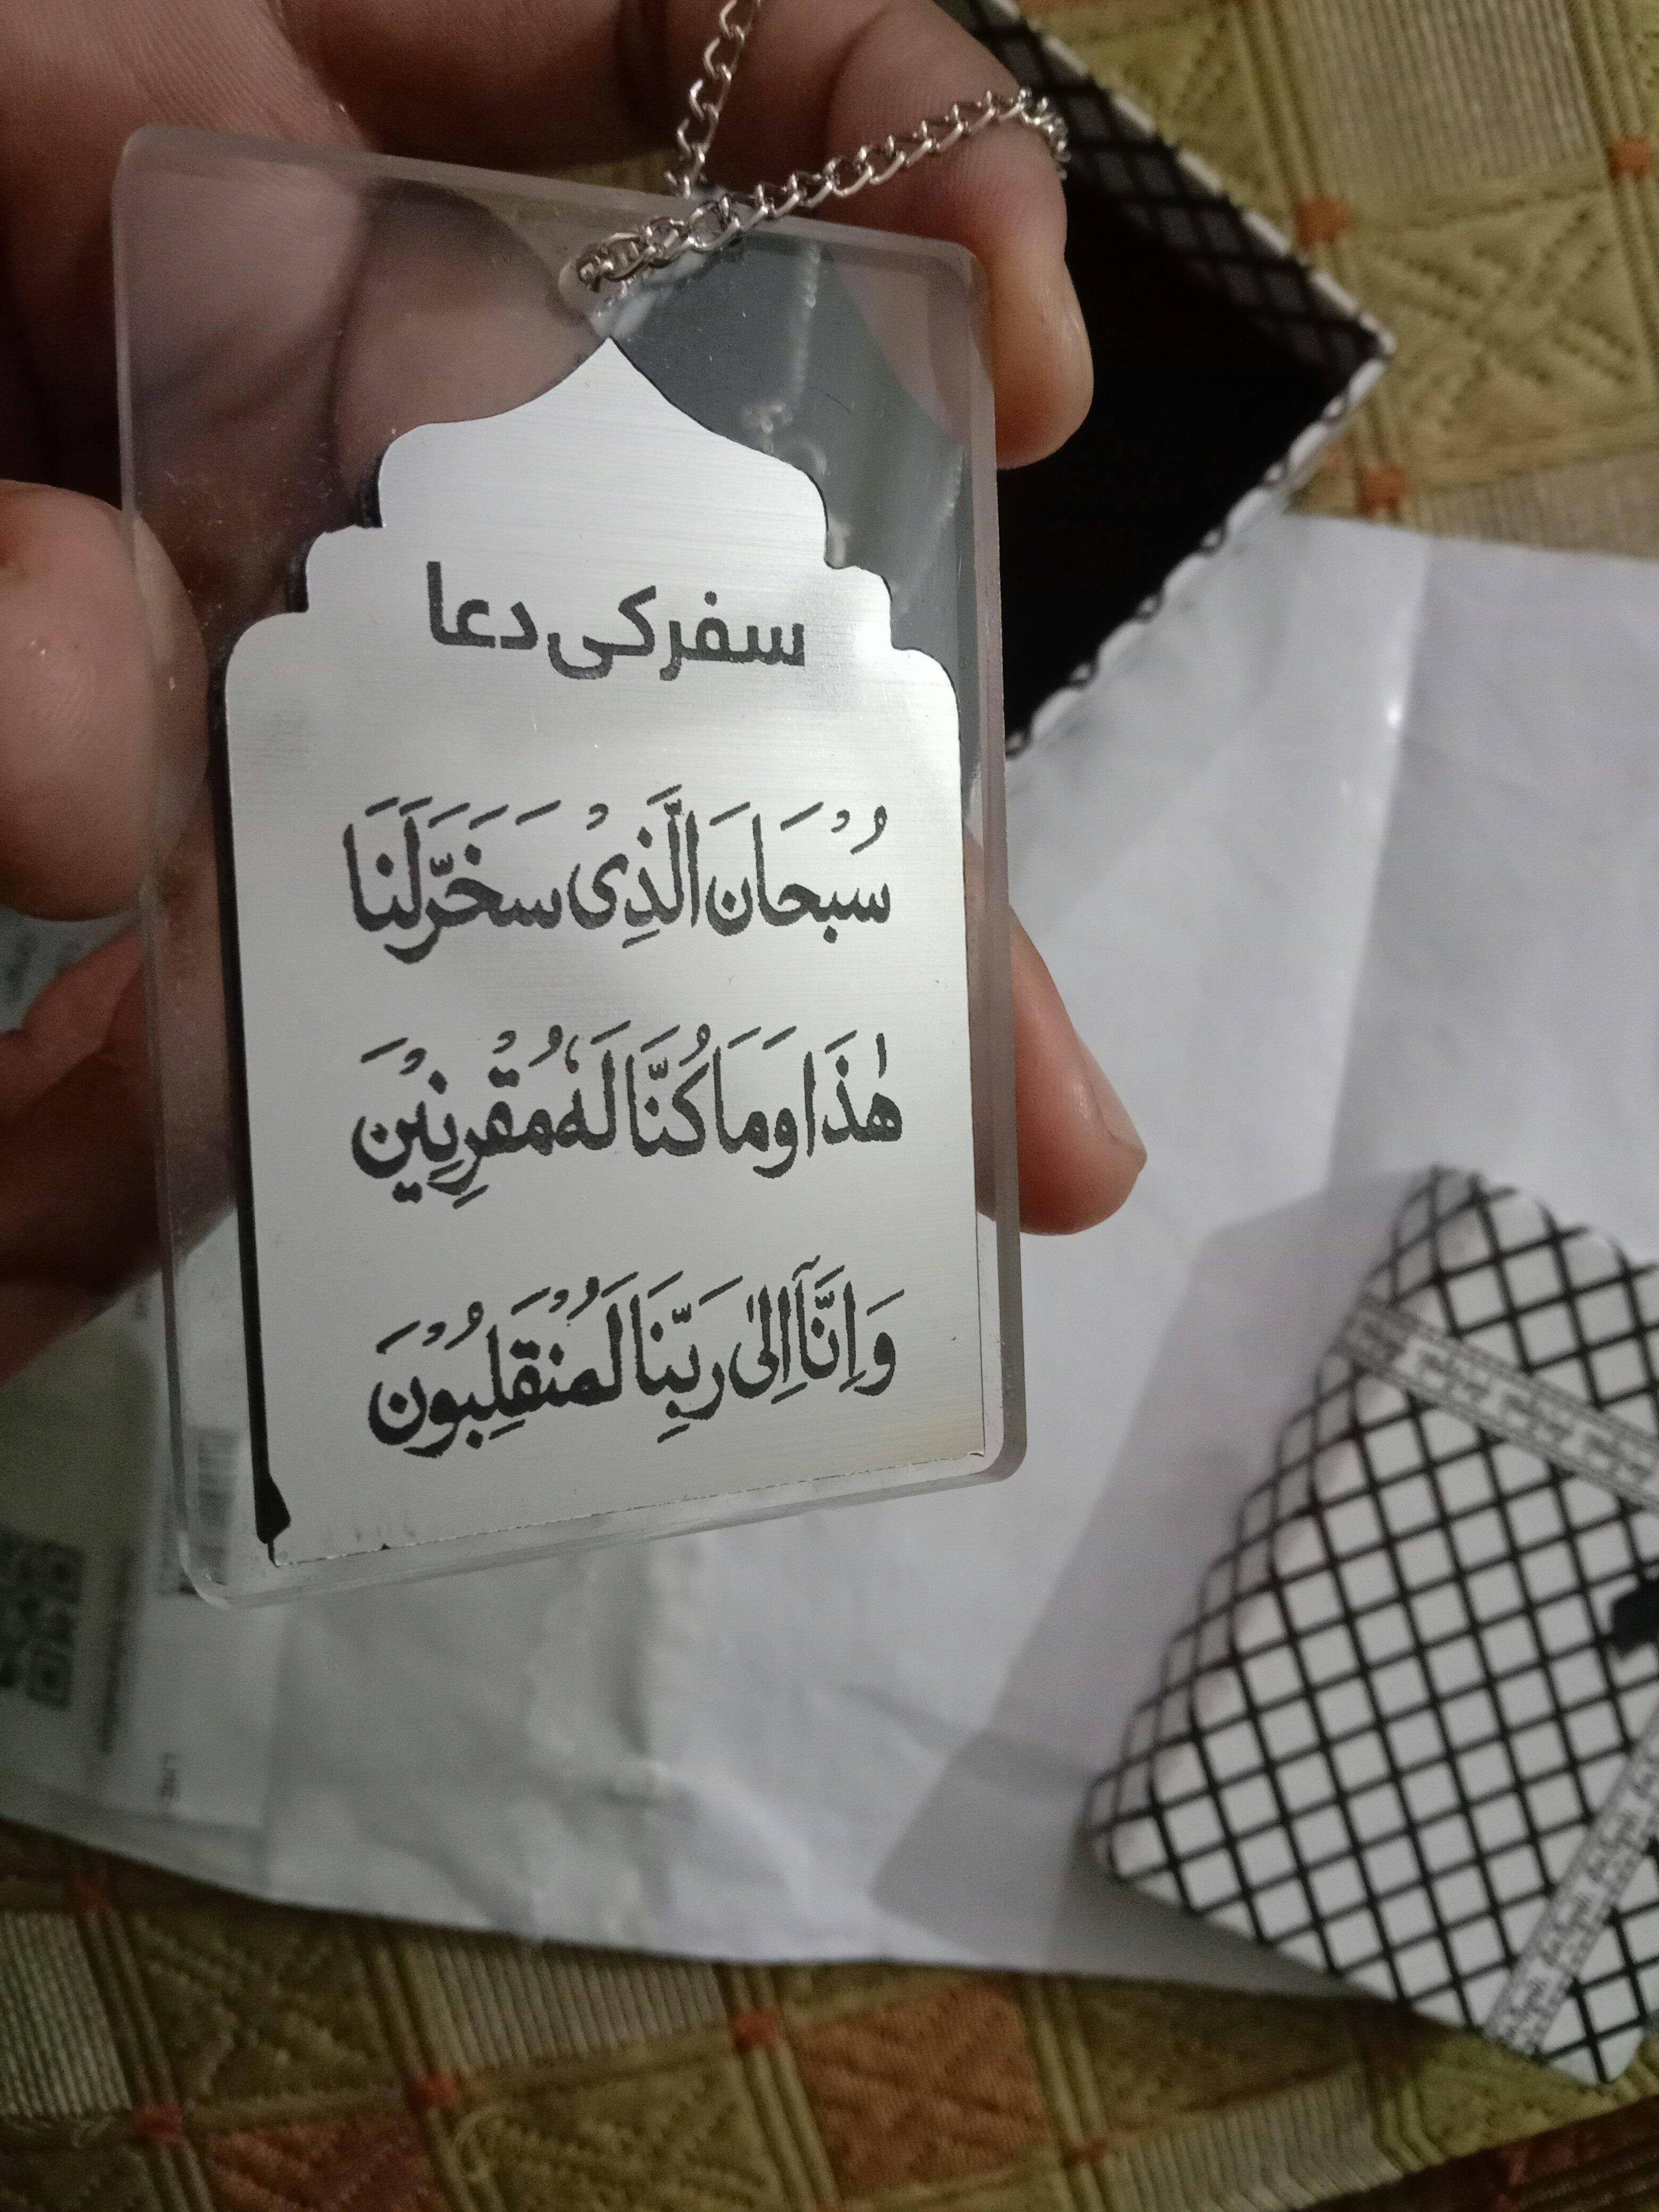 سفر کی دعا
سُبْحَانَ الَّذِیْ سَخَّرَ لَنَا
هٰذَا وَمَا كُنَّا لَهٗ مُقْرِنِیْنَ
وَاِنَّآ اِلٰی رَبِّنَا لَمُنْقَلِبُوْنَ